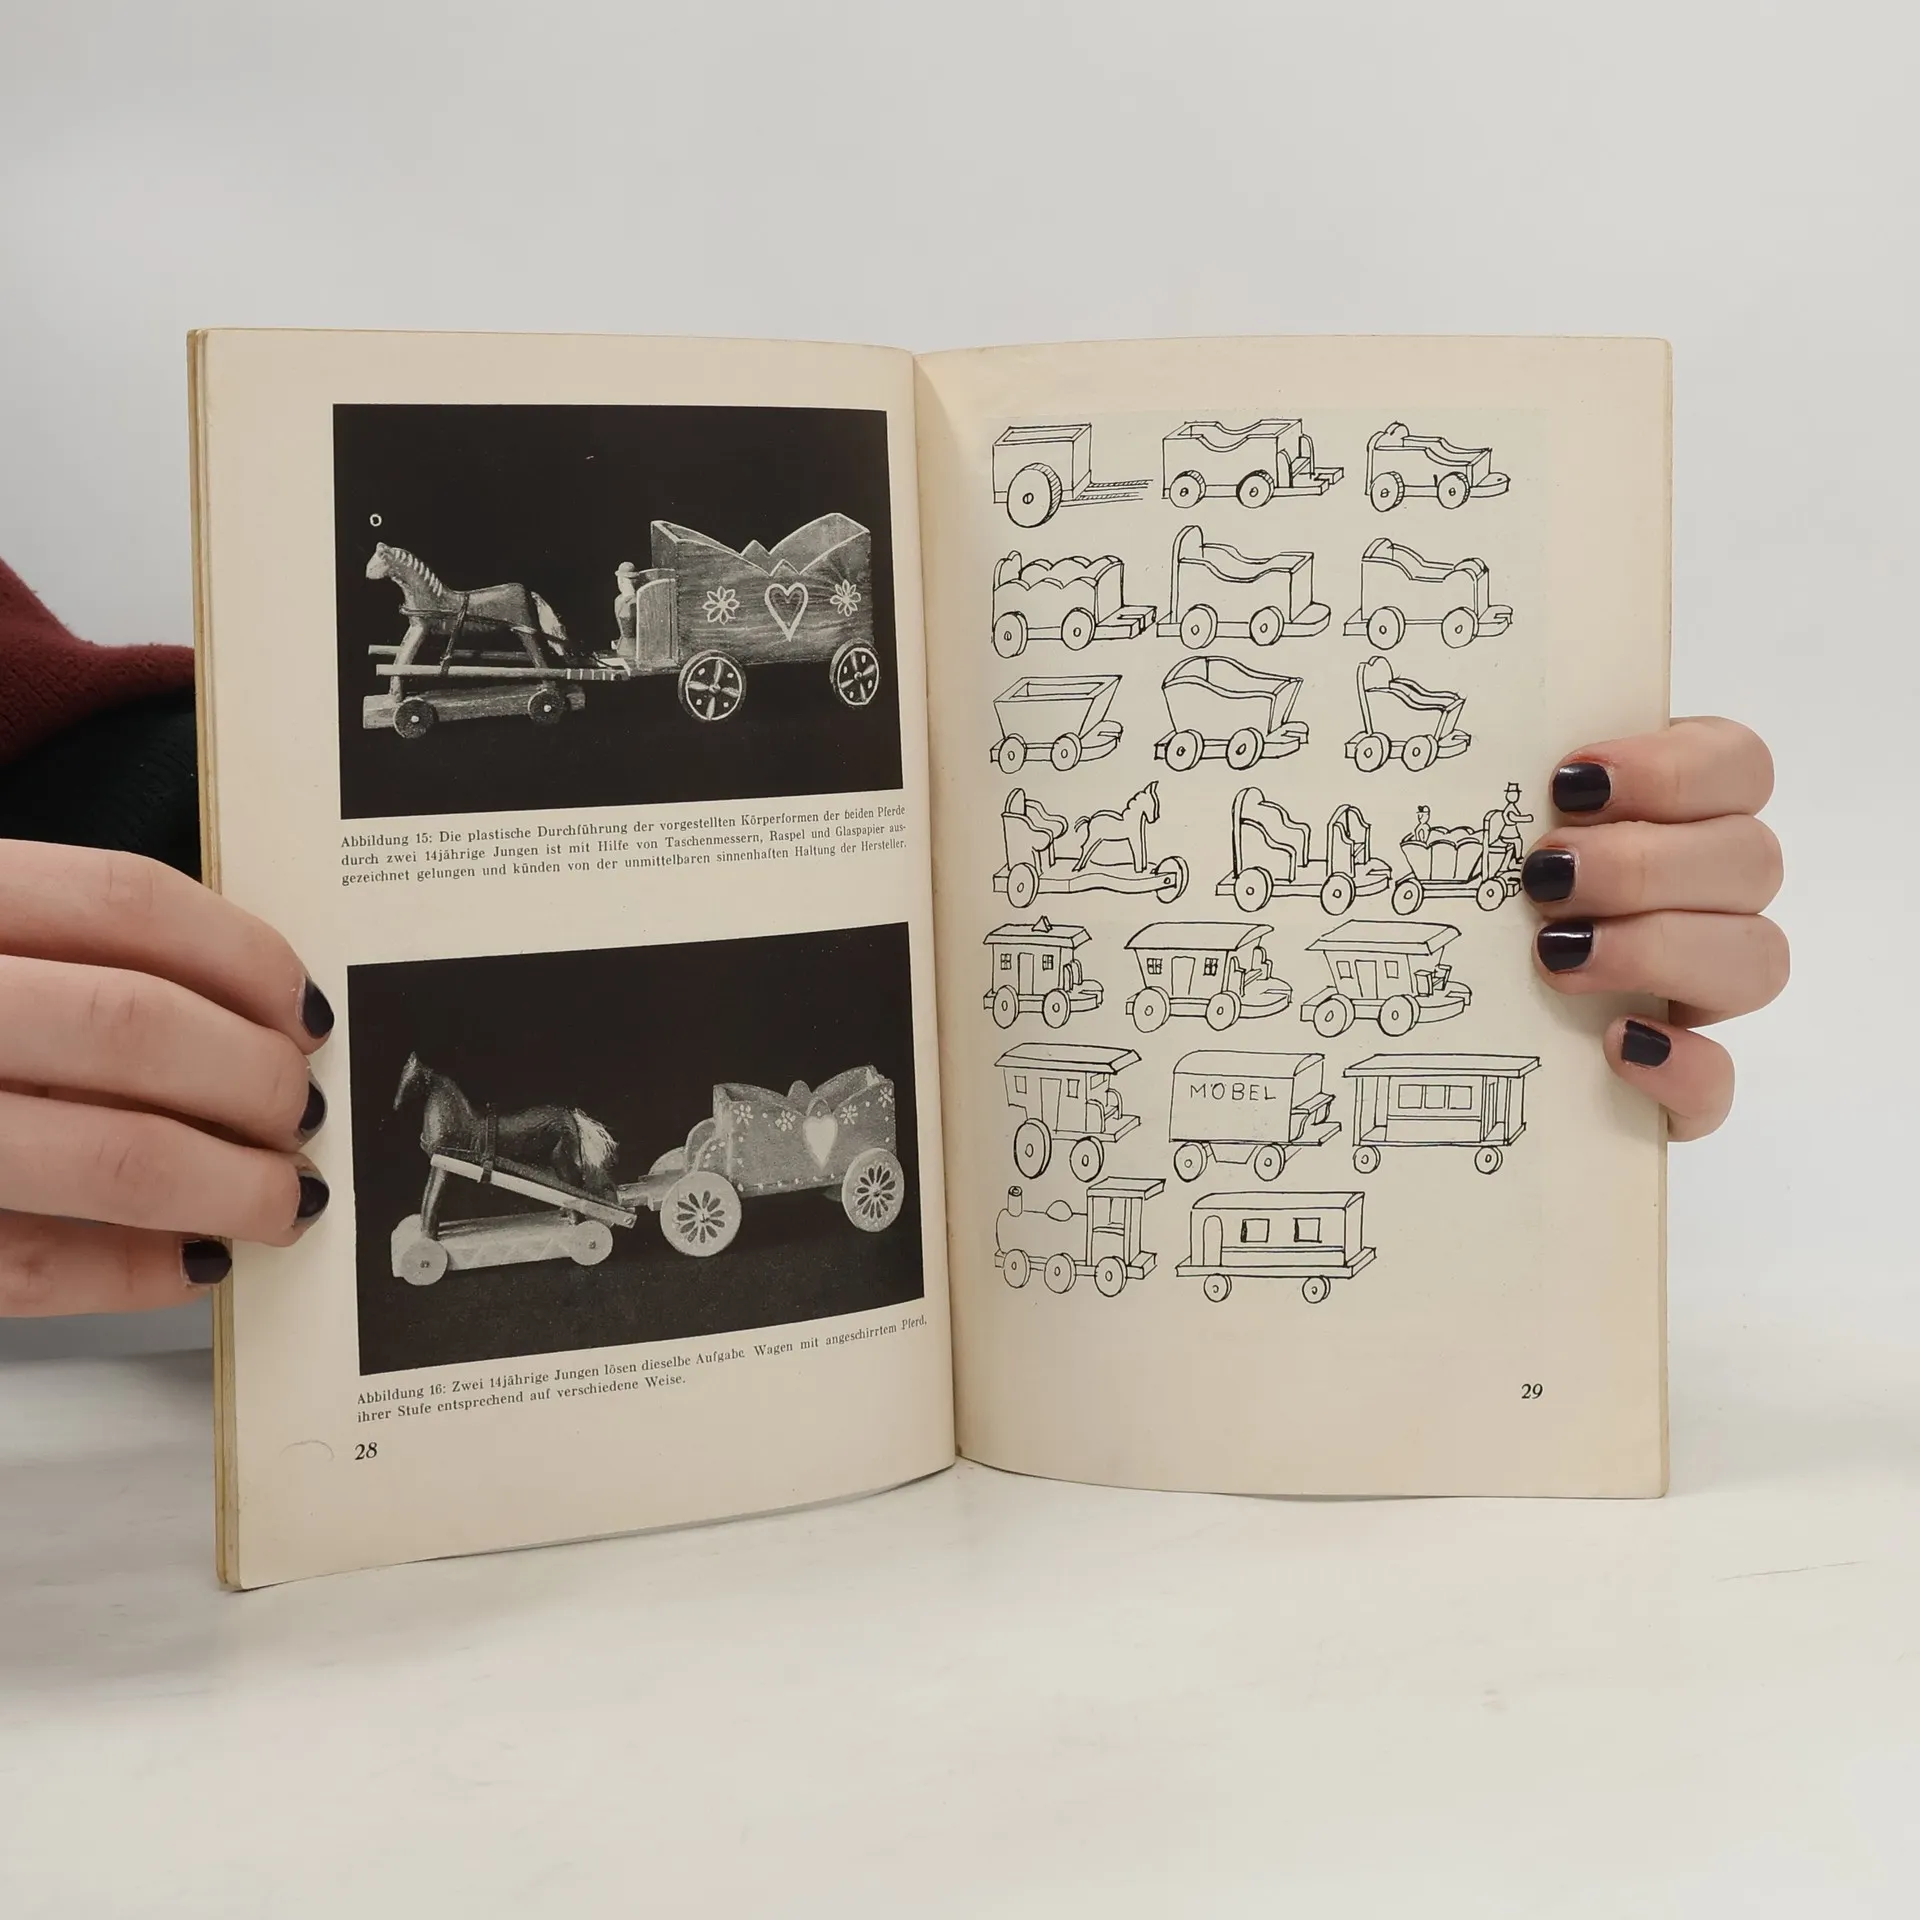 Abbildung 15: Die plastische Durchführung der vorgestellten Körperformen der beiden Pferde
durch zwei 14jährige Jungen ist mit Hilfe von Taschenmessern, Raspel und Glaspapier aus-
gezeichnet gelungen und künden von der unmittelbaren sinnenhaften Haltung der Hersteller.
Abbildung 16: Zwei 14jährige Jungen lösen dieselbe Aufgabe Wagen mit angeschirrtem Pferd,
ihrer Stufe entsprechend auf verschiedene Weise.
28
MÖBEL
29